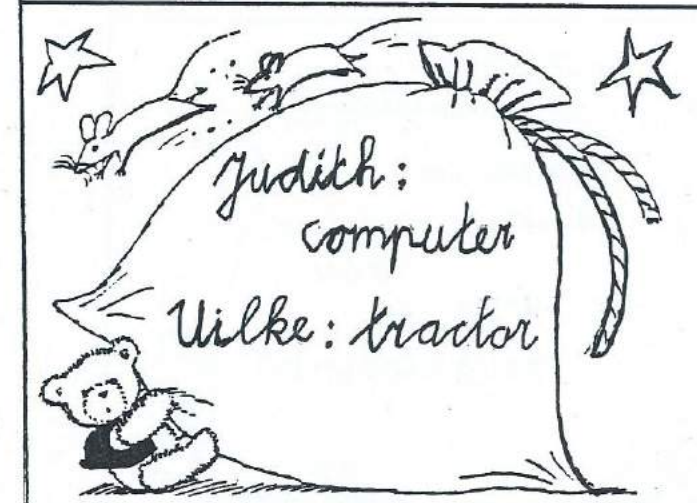 Judith:
computer
Uilke: tractor